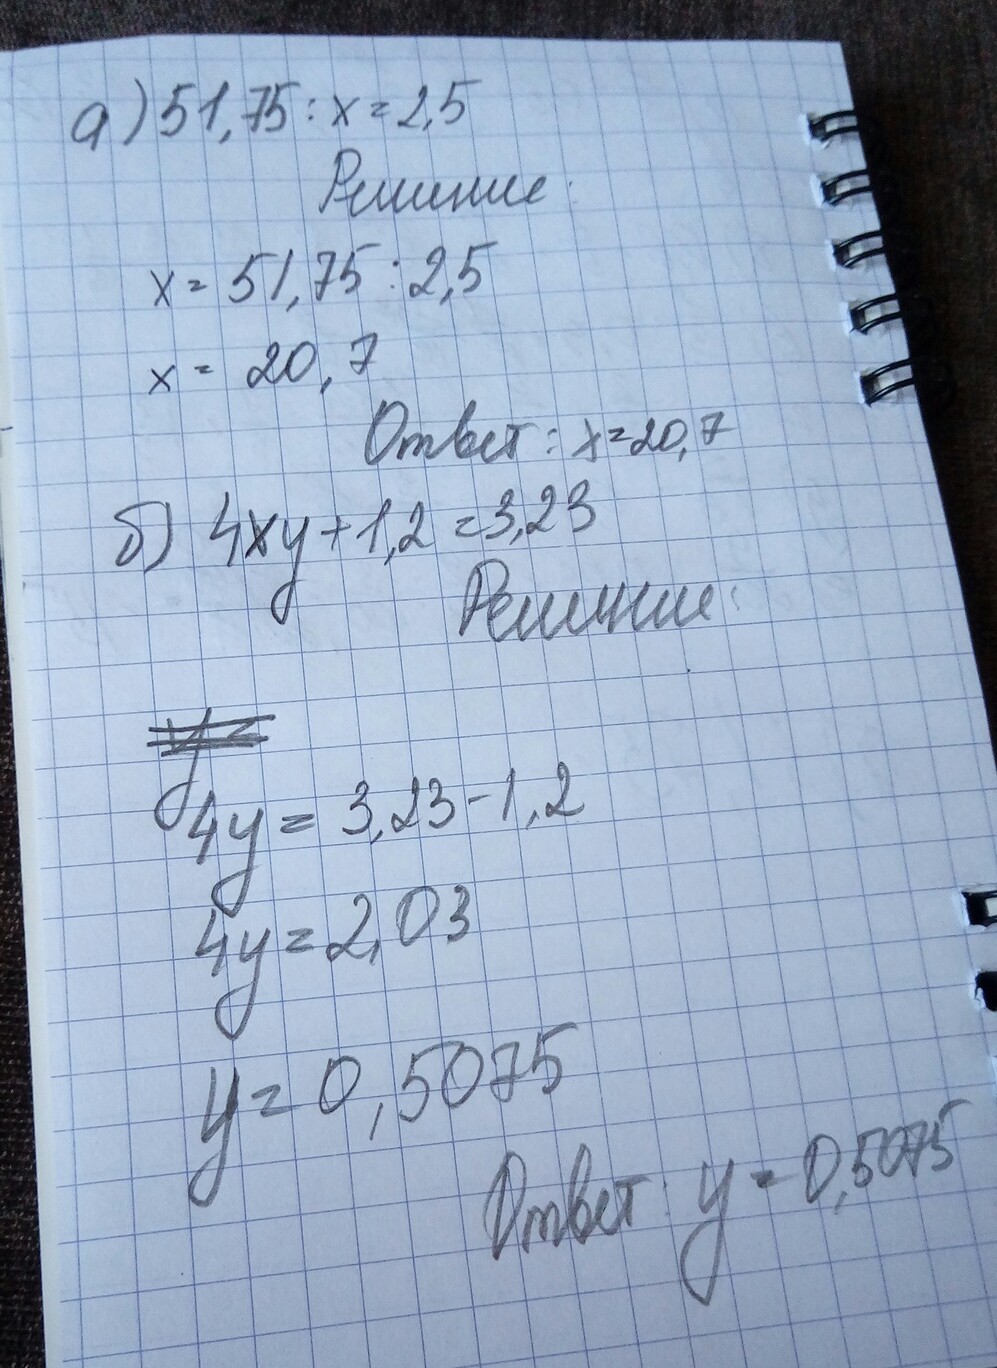 а) 51,75 : x = 2,5
Решение:
x = 51,75 : 2,5
x = 20,7
Ответ: x = 20,7
б) 4xy + 1,2 = 3,23
Решение:
4y = 3,23 - 1,2
4y = 2,03
y = 0,5075
Ответ: y = 0,5075